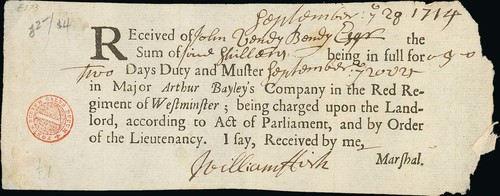 September: ye 28 1714
Received of John Bendy Bendy Esqr the
Sum of five Shillens being in full for
two Days Duty and Muster September
in Major Arthur Bayley's Company in the Red Re-
giment of Westminster; being charged upon the Land-
lord, according to Act of Parliament, and by Order
of the Lieutenancy. I say, Received by me,
William Marshal.